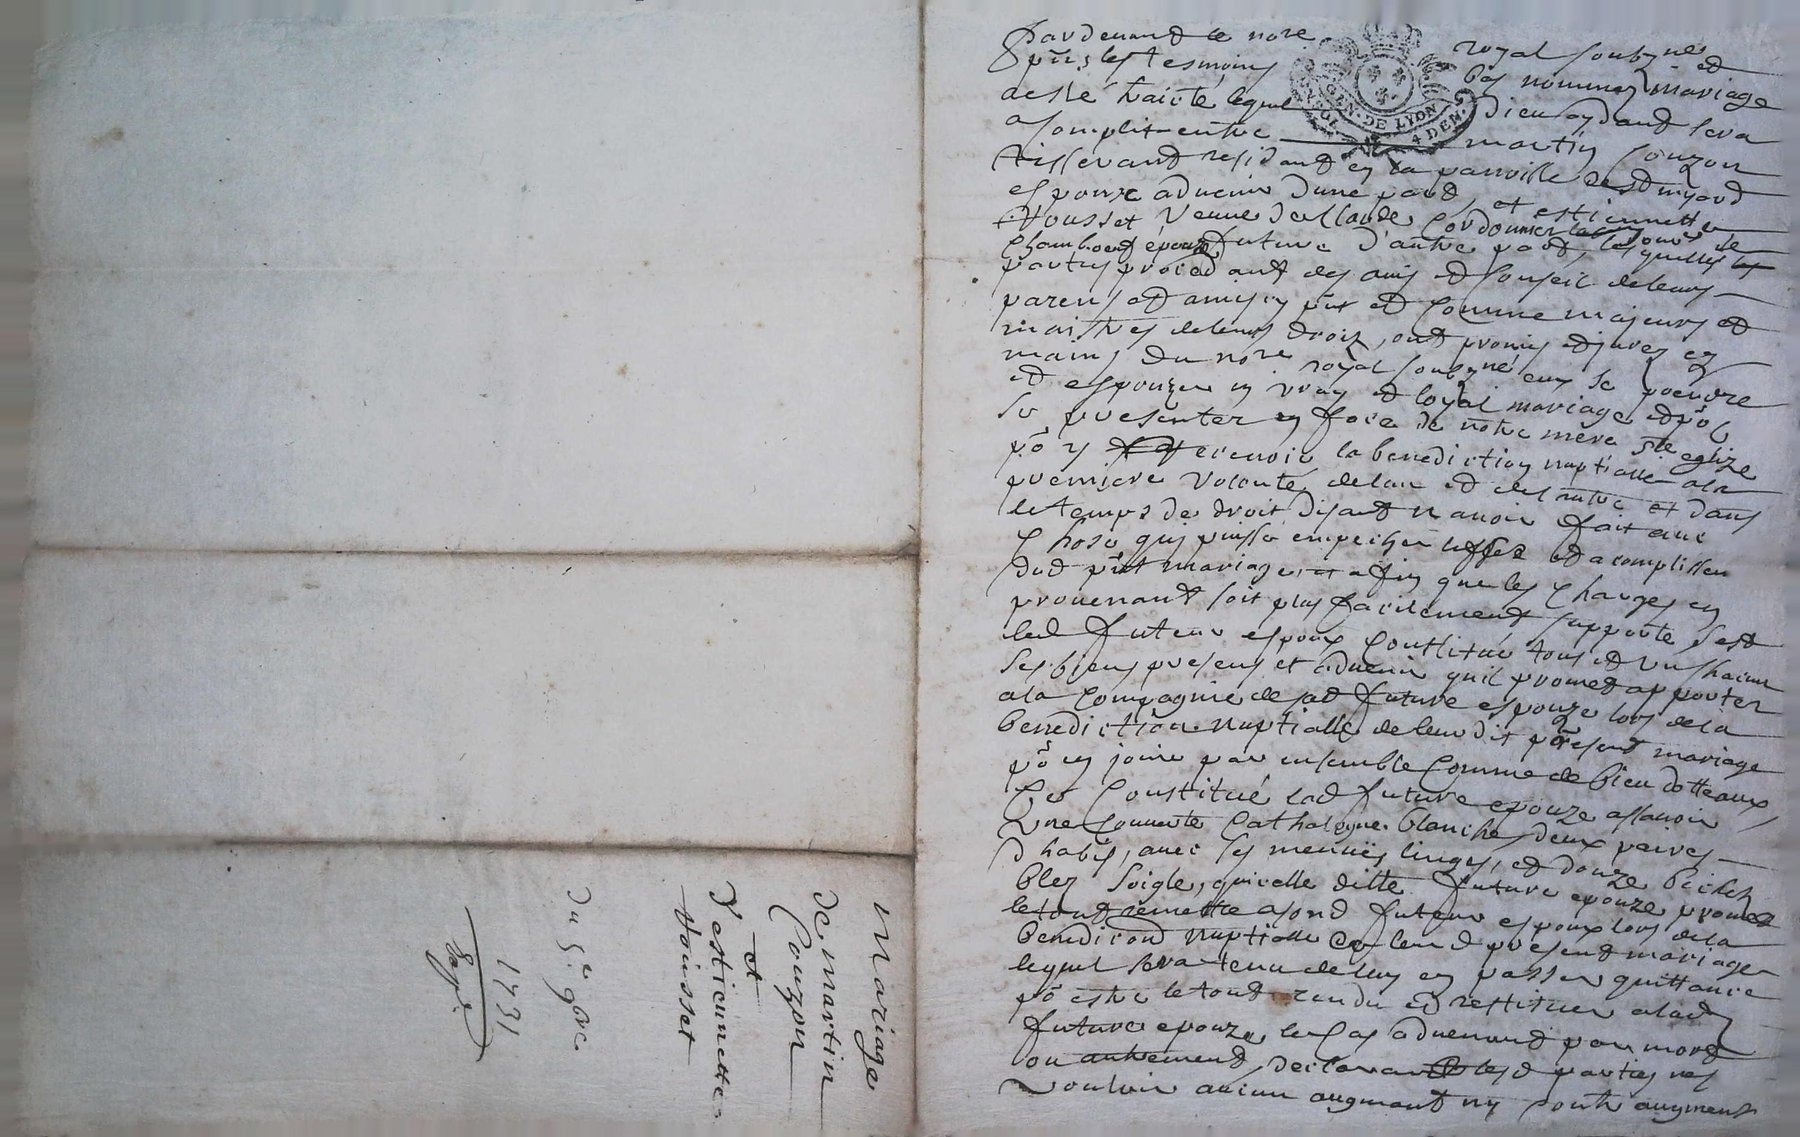 mariage
de martin
Couzon
et
d'estiennette
Vousset
du 5e 9bre
1731
Pardevant le nore royal soubzne et
pnts les tesmoins bas nommez mariage
a esté traicté lequel Dieu aydant sera
acomplit entre martin Couzon
tisserant residant en la parroisse
espoux advenir d'une part, et estiennette
Vousset veuve de Claude Cordonnier
époux future d'autre part, lesquelles
parties procedant des avis et conseil de leurs
parens et amis et comme majeurs et
maistres de leurs droitz, ont promis et jurez es
mains du nore royal soubzné eux se prendre
et espouzer en vray et loyal mariage et po
se presenter en face de notre mere ste eglize
po y recevoir la benediction nuptialle a la
premiere volonté de l'un et de l'autre et dans
le temps de droit disant n'avoir fait auc
chose qui puisse empecher l'effet et acomplissem
dud pnt mariage, et affin que les charges en
provenant soit plus facilement supporté s'est
led futeur espoux constitué tous et un chacun
ses biens presens et advenir qu'il promet apporter
a la compagnie de sad future espouze lors de la
benediction nuptialle de leur dit present mariage
po en joüir par ensemble comme de bien dotteaux
Ce constitué lad future epouze assavoir
une couverte Cathalogne blanche, deux paires
d'habis, avec ses menües linges, et douze bichets
bléz soigle, qu'icelle ditte future epouze promet
le tout remettre a sond futeur espoux lors de la
benediction nuptialle de leur d present mariage
lequel sera tenu de luy en passer quittance
po estre le tout rendu et restituer a lad
future epouze le cas advenant par mort
ou autrement, declarant lesd parties ne
vouloir aucun augment ny contr augment
GEN. DE LYON
4 DEN.